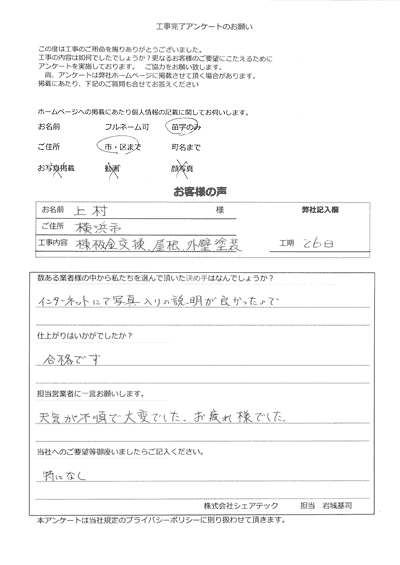 工事完了アンケートのお願い
この度は工事のご用命を賜りありがとうございました。
工事の内容は如何でしたでしょうか?更なるお客様のご要望にこたえるために
アンケートを実施しております。 ご協力をお願い致します。
尚、アンケートは弊社ホームページに掲載させて頂く場合があります。
掲載にあたり、下記のご質問も合せてお答えください
ホームページへの掲載にあたり個人情報の記載に関してお伺いします。
お名前 フルネーム可 苗字のみ
ご住所 市・区まで 町名まで
お写真掲載 動画 顔写真
お客様の声
お名前 上村 様 弊社記入欄
ご住所 横浜市
工事内容 棟板金交換、屋根、外壁塗装 工期 26日
数ある業者様の中から私たちを選んで頂いた決め手はなんでしょうか?
インターネットにて写真入りの説明が良かったので
仕上がりはいかがでしたか?
合格です
担当営業者に一言お願いします。
天気が不順で大変でした。お疲れ様でした。
当社へのご要望等御座いましたらご記入ください。
特になし
株式会社シェアテック 担当 岩城基司
本アンケートは当社規定のプライバシーポリシーに則り扱わせて頂きます。